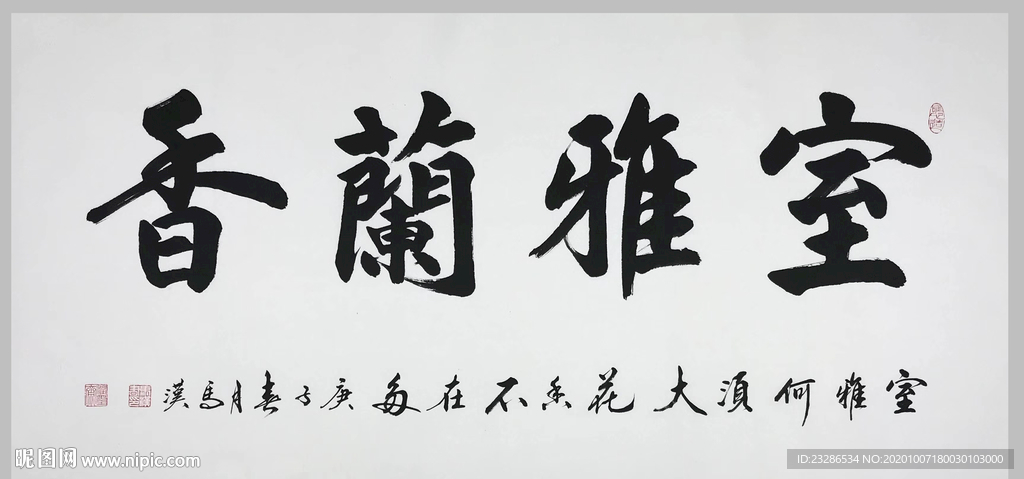 室雅蘭香
室雅何須大花香不在多庚子春月馬漢
昵图网 www.nipic.com
ID:23286534 NO:20201007180030103000